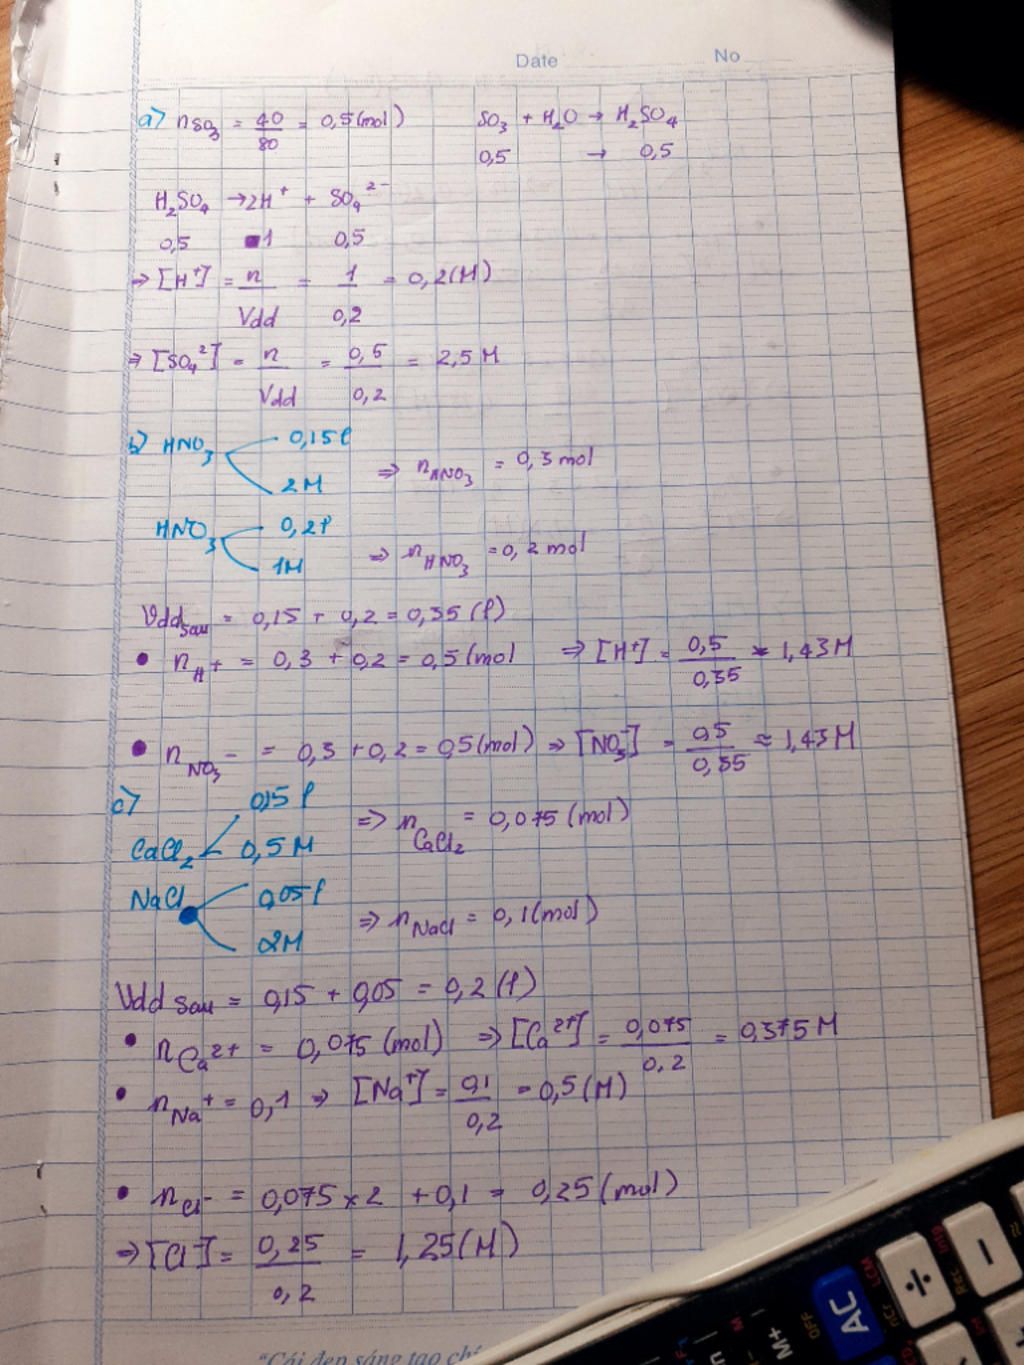 Date No
a) nSO₃ = 40/80 = 0,5 (mol) SO₃ + H₂O → H₂SO₄
0,5 → 0,5
H₂SO₄ → 2H⁺ + SO₄²⁻
0,5 1 0,5
⇒ [H⁺] = n/Vdd = 1/0,2 = 0,2 (M)
⇒ [SO₄²⁻] = n/Vdd = 0,5/0,2 = 2,5 M
b) HNO₃ 0,15 l
2M ⇒ nHNO₃ = 0,3 mol
HNO₃ 0,2 l
1M ⇒ nHNO₃ = 0,2 mol
Vdd sau = 0,15 + 0,2 = 0,35 (l)
• nH⁺ = 0,3 + 0,2 = 0,5 (mol ⇒ [H⁺] = 0,5/0,35 ≈ 1,43 M
• nNO₃⁻ = 0,3 + 0,2 = 0,5 (mol) ⇒ [NO₃⁻] = 0,5/0,35 ≈ 1,43 M
c) CaCl₂ 0,15 l
0,5 M ⇒ nCaCl₂ = 0,075 (mol)
NaCl 0,05 l
2M ⇒ nNaCl = 0,1 (mol)
Vdd sau = 0,15 + 0,05 = 0,2 (l)
• nCa²⁺ = 0,075 (mol) ⇒ [Ca²⁺] = 0,075/0,2 = 0,375 M
• nNa⁺ = 0,1 ⇒ [Na⁺] = 0,1/0,2 = 0,5 (M)
• nCl⁻ = 0,075 × 2 + 0,1 = 0,25 (mol)
⇒ [Cl⁻] = 0,25/0,2 = 1,25 (M)
"Cái đẹp sáng tạo
AC
OFF
M+
M
LCM
÷
−